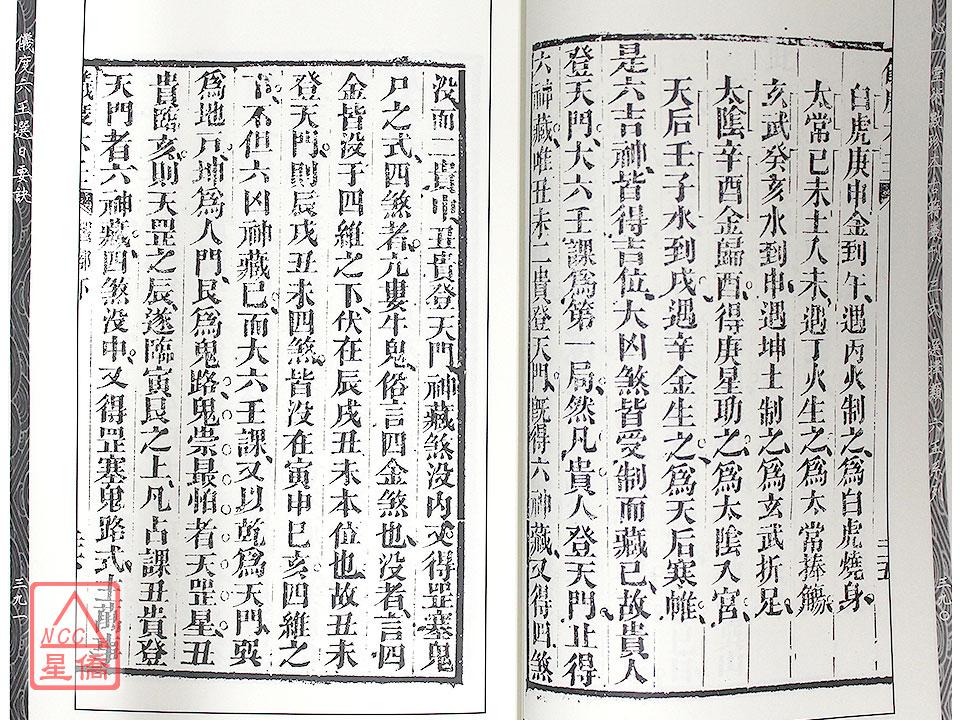 白虎庚申金到午、遇丙火制之、為白虎燒身、
太常己未土入未、遇丁火生之、為太常捧觴、
玄武癸亥水到申、遇坤土制之、為玄武折足、
太陰辛酉金歸酉、得庚星助之、為太陰入宮、
天后壬子水到戌、遇辛金生之、為天后褰帷、
是六吉神、皆得吉位、六凶煞皆受制而藏已、故貴人
登天門、大六壬課為第一局、然凡貴人登天門、止得
六神藏、唯丑未二貴、登天門、既得六神藏、又得四煞
三九〇
没而二貴中、丑貴登天門、神藏煞没内、又得罡塞鬼
戶之式、四煞者、亢婁牛鬼、俗言四金煞也、没者、言四
金皆没于四維之下、伏在辰戌丑未本位也、故丑未
登天門、則辰戌丑未四煞、皆没在寅申巳亥四維之
下、不但六凶神藏已、而大六壬課、又以乾為天門、巽
為地戶、坤為人門、艮為鬼路、鬼祟最怕者天罡星、丑
貴臨亥、則天罡之辰、遂臨寅艮之上、凡占課丑貴登
天門者、六神藏、四煞没中、又得罡塞鬼路式、主萬事
儀度六壬選日要訣
三九一
NCC
星僑